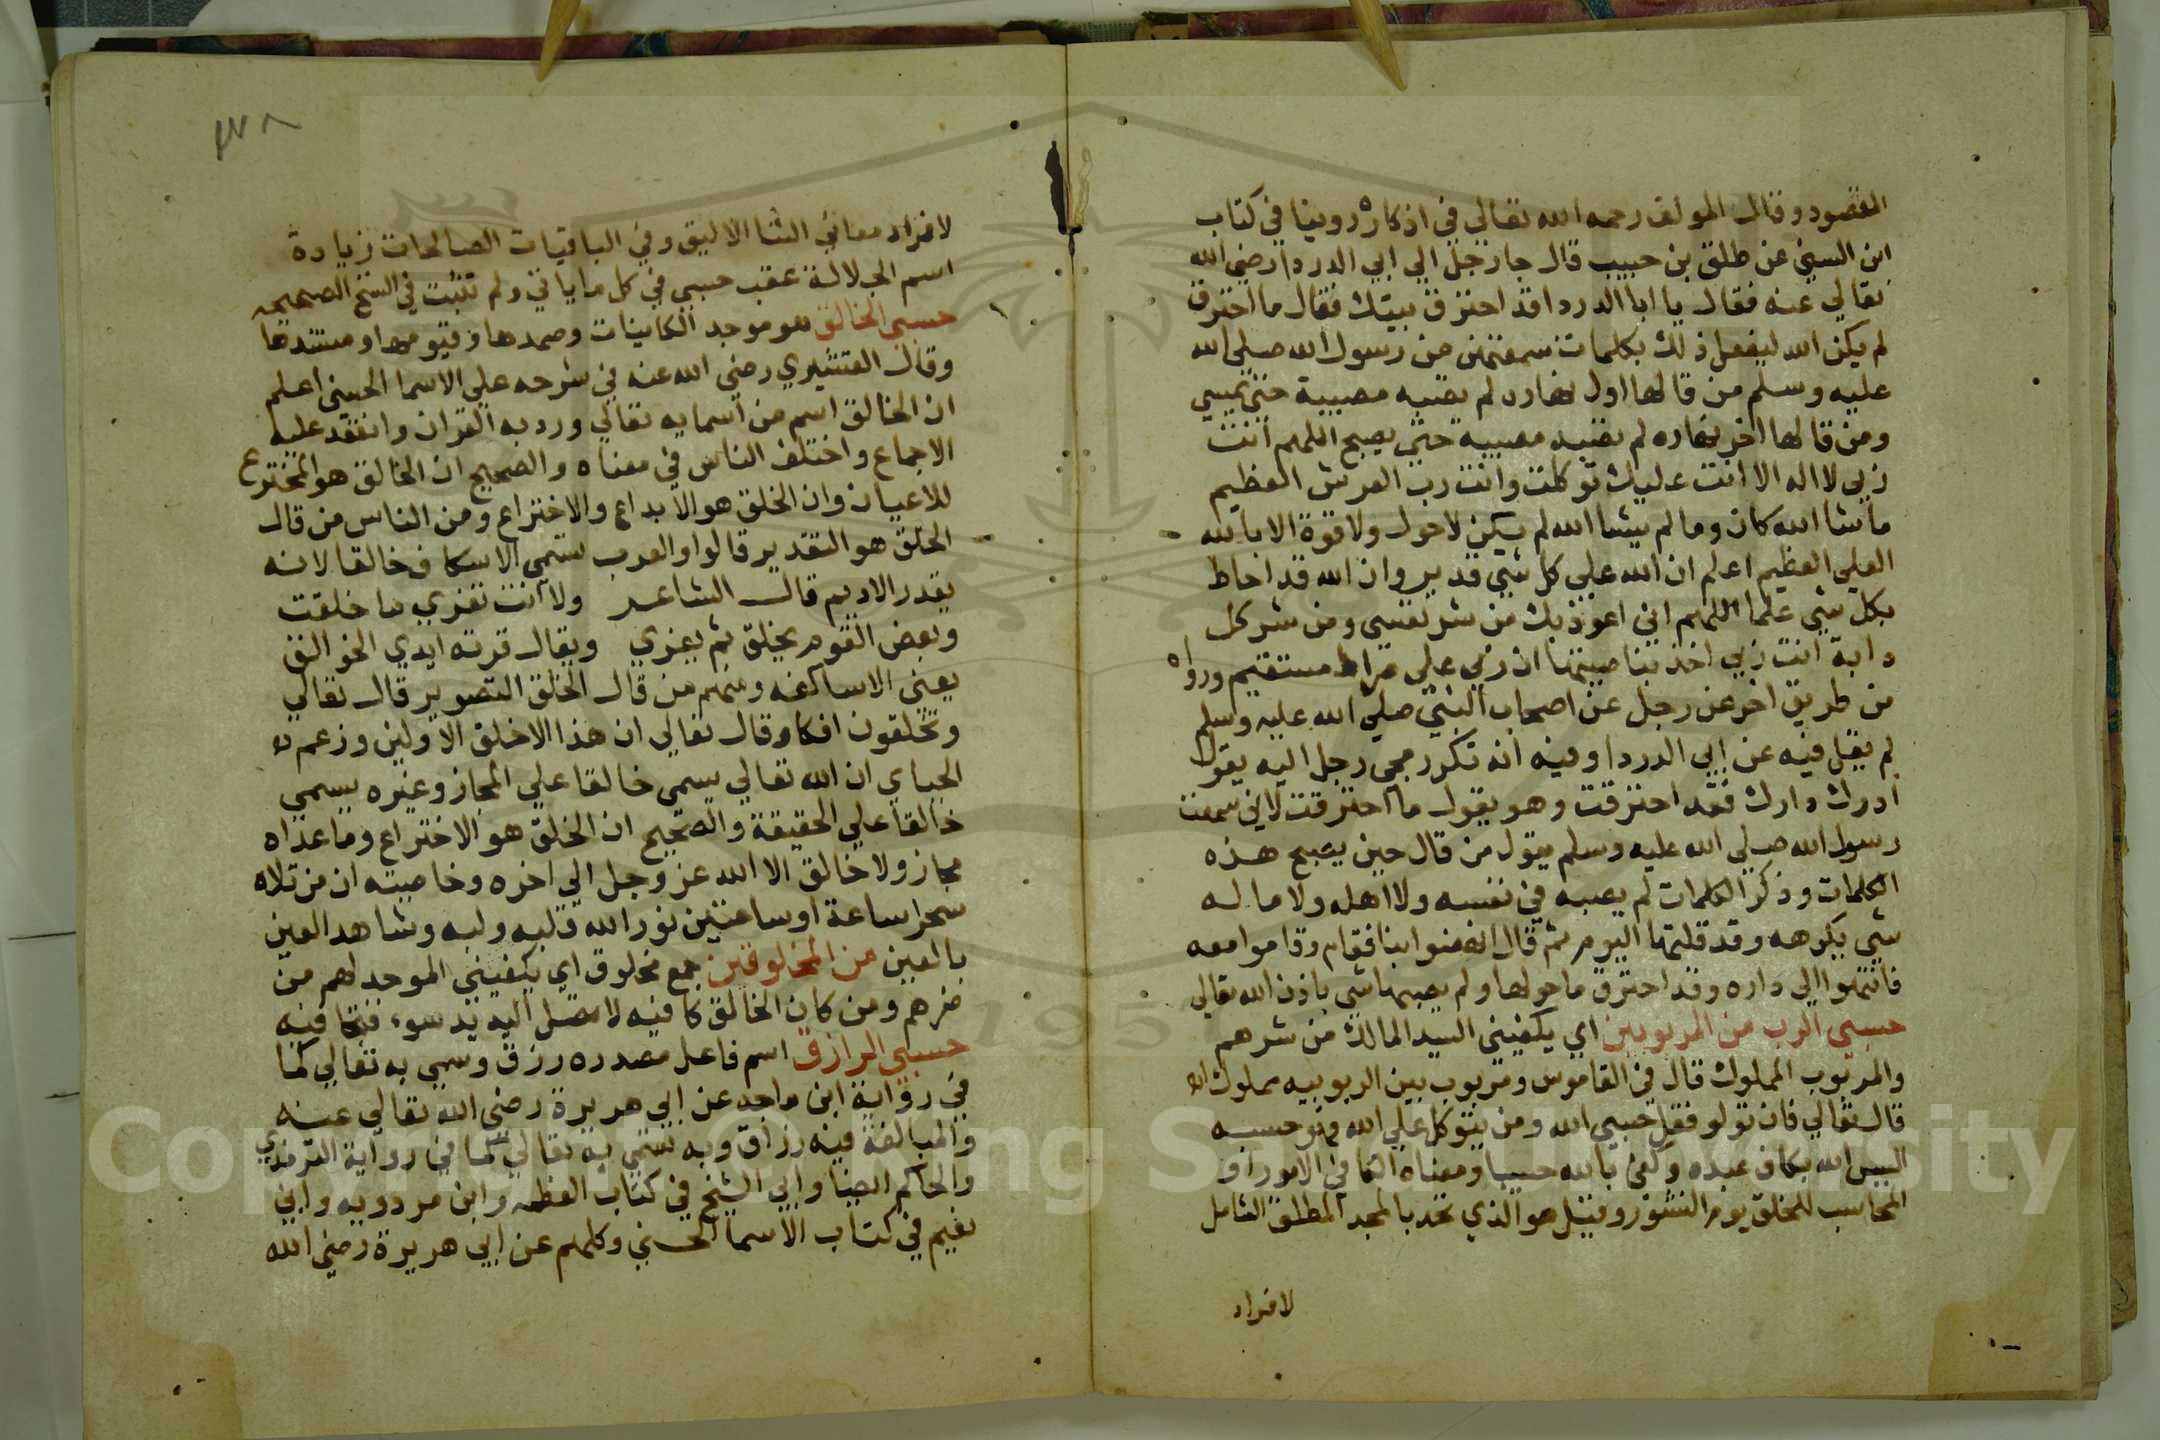 المقصود وقال المولف رحمه الله تعالي في اذكاره روينا في كتاب
ابن السني عن طلق بن حبيب قال جا رجل الي ابي الدردا رضي الله
تعالي عنه فقال يا ابا الدردا قد احترق بيتك فقال ما احترق
لم يكن الله ليفعل ذلك بكلمات سمعتهن من رسول الله صلي الله
عليه وسلم من قالها اول نهاره لم تصبه مصيبة حتي يمسي
ومن قالها اخر نهاره لم تصبه مصيبة حتي يصبح اللهم انت
ربي لا اله الا انت عليك توكلت وانت رب العرش العظيم
ما شا الله كان وما لم يشا الله لم يكن لا حول ولا قوة الا بالله
العلي العظيم اعلم ان الله علي كل شي قدير وان الله قد احاط
بكل شي علما اللهم اني اعوذ بك من شر نفسي ومن شر كل
دابة انت ربي اخذ بناصيتها ان ربي علي صراط مستقيم ورواه
من طريق اخر عن رجل عن اصحاب النبي صلي الله عليه وسلم
لم يقل فيه عن ابي الدردا وفيه انه تكرر مجي رجل اليه يقول
ادرك دارك فقد احترقت وهو يقول ما احترقت لاني سمعت
رسول الله صلي الله عليه وسلم يقول من قال حين يصبح هذه
الكلمات وذكر الكلمات لم يصبه في نفسه ولا اهله ولا ماله
شي يكرهه وقد قلتها اليوم ثم قال انهضوا بنا فقام وقاموا معه
فانتهوا الي داره وقد احترق ما حولها ولم يصبها شي باذن الله تعالي
حسبي الرب من المربوبين اي يكفيني السيد المالك من شرهم
والمربوب المملوك قال في القاموس ومربوب بين الربوبيه مملوك اه
قال تعالي فان تولو فقل حسبي الله ومن يتوكل علي الله فهو حسبه
اليس الله بكاف عبده وكفي بالله حسيبا ومعناه الكافي الامور او
المحاسب للخلق يوم النشور وقيل هو الذي تمجد بالمجد المطلق الشامل
لافراد
٢٧٨
لافراد معاني الثنا الاليق وفي الباقيات الصالحات زيادة
اسم الجلالة عقب حسبي في كل ما ياتي ولم تثبت في النسخ الصحيحه
حسبي الخالق هو موجد الكاينات وصمدها وقيومها ومسندها
وقال القشيري رضي الله عنه في شرحه علي الاسما الحسني اعلم
ان الخالق اسم من اسمايه تعالي ورد به القران وانعقد عليه
الاجماع واختلف الناس في معناه والصحيح ان الخالق هو المخترع
للاعيان وان الخلق هو الابداع والاختراع ومن الناس من قال
الخلق هو التقدير قالوا والعرب تسمي الاسكاف خالقا لانه
يقدر الاديم قال الشاعر ولا انت تفري ما خلقت
وبعض القوم يخلق ثم يفري ويقال قرته ايدي الخوالق
يعني الاساكفه ومنهم من قال الخلق التصوير قال تعالي
وتخلقون افكا وقال تعالي ان هذا الا خلق الاولين وزعم
الجباي ان الله تعالي يسمي خالقا علي المجاز وغيره يسمي
خالقا علي الحقيقة والصحيح ان الخلق هو الاختراع وما عداه
مجاز ولا خالق الا الله عز وجل الي اخره وخاصيته ان من تلاه
سحرا ساعة او ساعتين نور الله قلبه ولبه وشاهد العين
بالعين من المخلوقين جمع مخلوق اي يكفيني الموجد لهم من
ضرهم ومن كان الخالق كافيه لا تصل اليه يد سوء
حسبي الرازق اسم فاعل مصدره رزق وسمي به تعالي كما
في رواية ابن ماجه عن ابي هريرة رضي الله تعالي عنه
والمبالغة فيه رزاق وبه تسمي به تعالي كما في رواية الترمذي
والحاكم ايضا وابي الشيخ في كتاب العظمه وابن مردويه وابي
نعيم في كتاب الاسما الحسني وكلهم عن ابي هريرة رضي الله
Copyright © King Saud University
1957